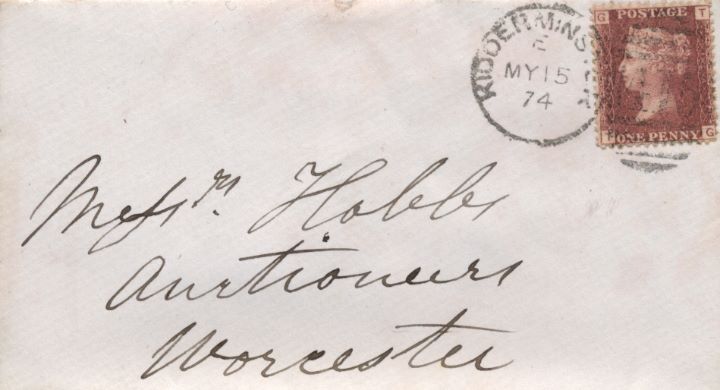 KIDDERMINSTER
E
MY 15
74
G T
POSTAGE
ONE PENNY
T G
Messrs. Hobbs
Auctioneers
Worcester